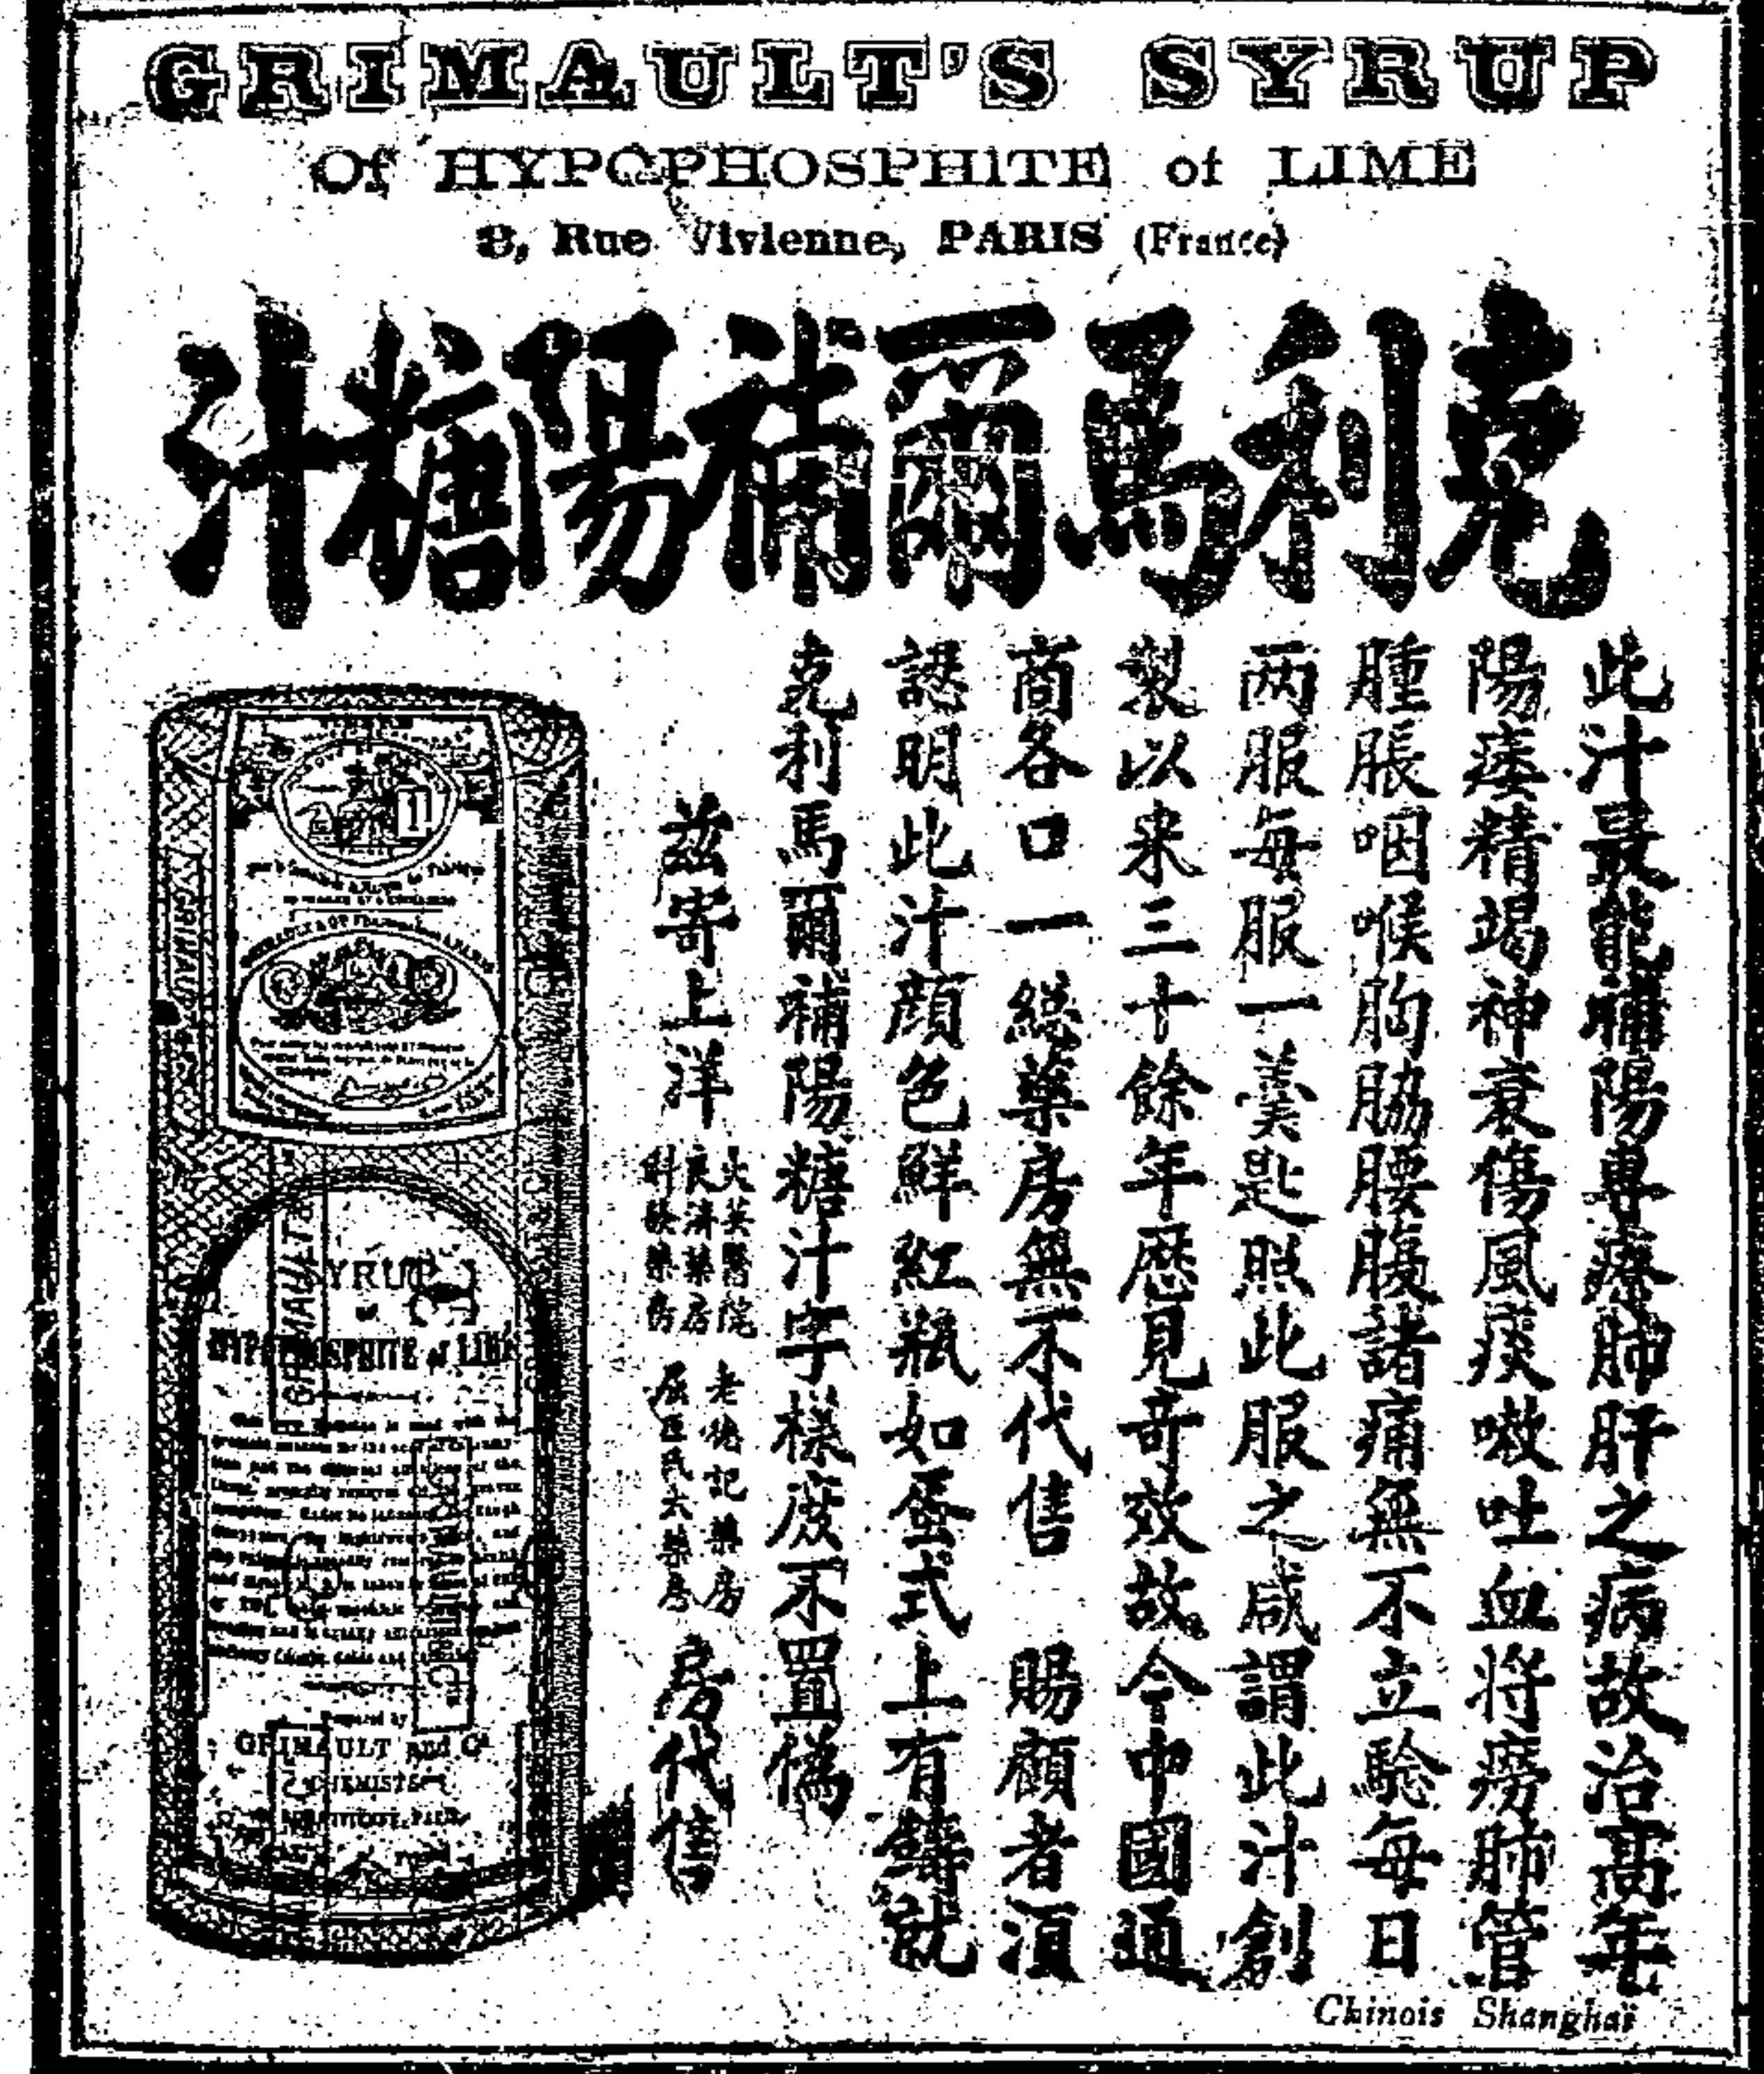 GRIMAULT'S SYRUP
Of HYPOPHOSPHITE of LIME
8, Rue Vivienne, PARIS (France)
克利馬爾補陽糖汁
此汁最能補陽專療肺肝之病故治高年
陽痿精竭神衰傷風痰嗽吐血將癆肺管
腫脹咽喉胸脇腰腹諸痛無不立驗每日
两服每服一羹匙照此服之咸謂此汁創
製以来三十餘年歷見奇效故今中國通
商各口一總藥房無不代售 賜顧者須
認明此汁顏色鮮紅瓶如蛋式上有鑄就
克利馬爾補陽糖汁字樣庶不置偽
茲寄上洋
大英醫院
良濟藥房
科發藥房
老德記藥房
屈臣氏大藥房
房代售
GRIMAULT
SYRUP
of
HYPOPHOSPHITE of LIME
Prepared by
GRIMAULT and Co
CHEMISTS
Chinois Shanghaï